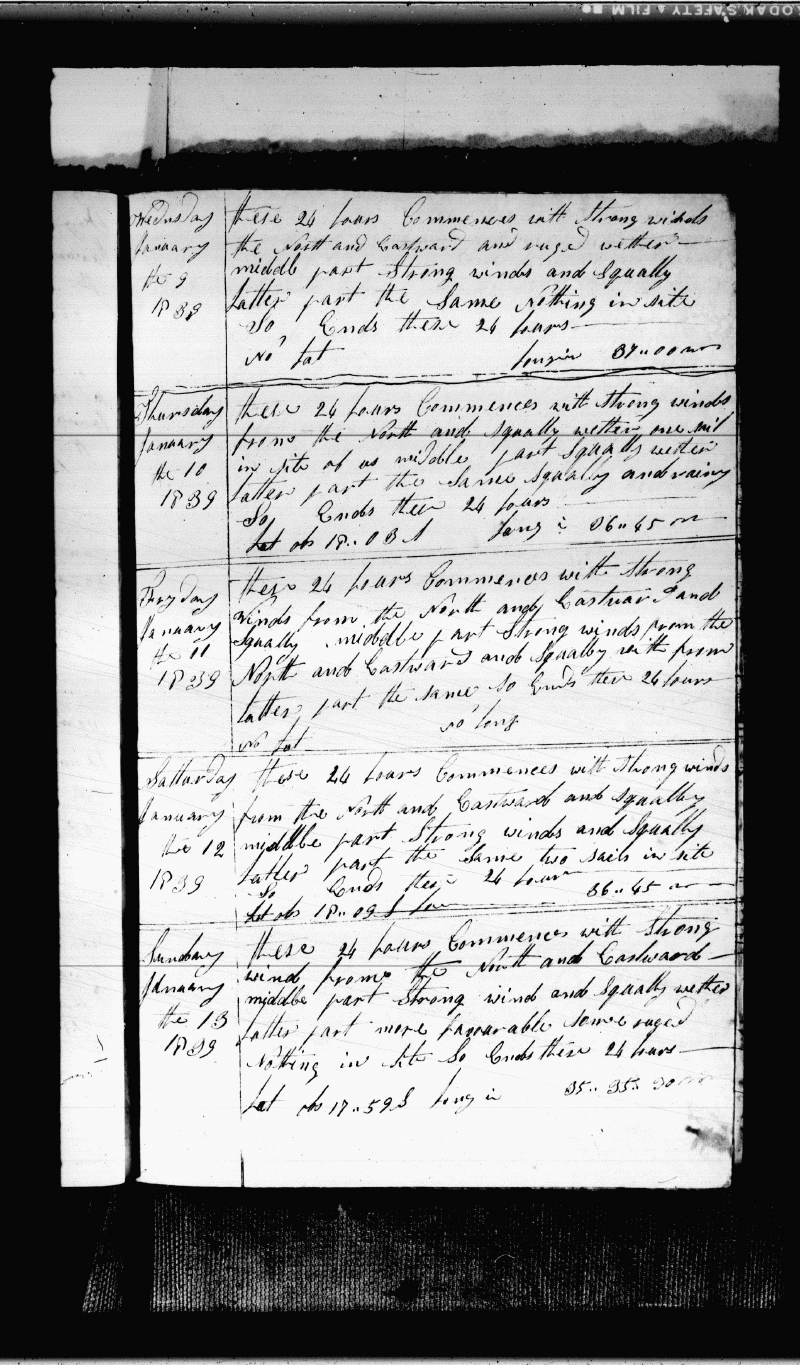 KODAK SAFETY FILM
Wedusday
January
the 9
1839
these 24 hours Commences with Strong winds
the North and Eastward and ruged wether
middle part Strong winds and Squally
latter part the Same Nothing in site
So Ends these 24 hours
No lat long in 37..00
Thursday
January
the 10
1839
these 24 hours Commences with Strong winds
from the North and Squally wether one sail
in site of us middle part Squally wether
latter part the Same Squally and rainy
So Ends these 24 hours
Lat obs 18..03 S long in 36..45
Fryday
January
the 11
1839
these 24 hours Commences with Strong
winds from the North and Eastward and
Squally middle part Strong winds from the
North and Eastward and Squally with from
latter part the same So Ends these 24 hours
No lat No long
Satturday
January
the 12
1839
these 24 hours Commences with Strong winds
from the North and Eastward and Squally
middle part Strong winds and Squally
latter part the Same two sails in site
So Ends these 24 hours
Lat obs 18..09 S lon 36..45
Sunday
January
the 13
1839
these 24 hours Commences with Strong
wind from the North and Eastward
middle part Strong wind and Squally wether
latter part more favourable some ruged
Nothing in site So Ends these 24 hours
Lat obs 17..59 S long in 35..35..30